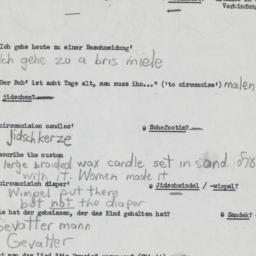 Verbindun
Ich gehe heute zu einer Beschneidung'
Ich gehe zu a bris miele
Der Bub' ist acht Tage alt, man muss ihn..." ('to circumcise') malen
jüdschen?
circumcision candles'
@ Schefostim?
Jidschkerze
escribe the custom
large braided wax candle set in sand
with it. Women made it
circumcision diaper'
@ Jidschwindel / -wimpel?
Wimpel put there
but not the diaper
ie hat der geheissen, der das Kind gehalten hat?
@ Sandek?
Gevatter mann
Gevatter